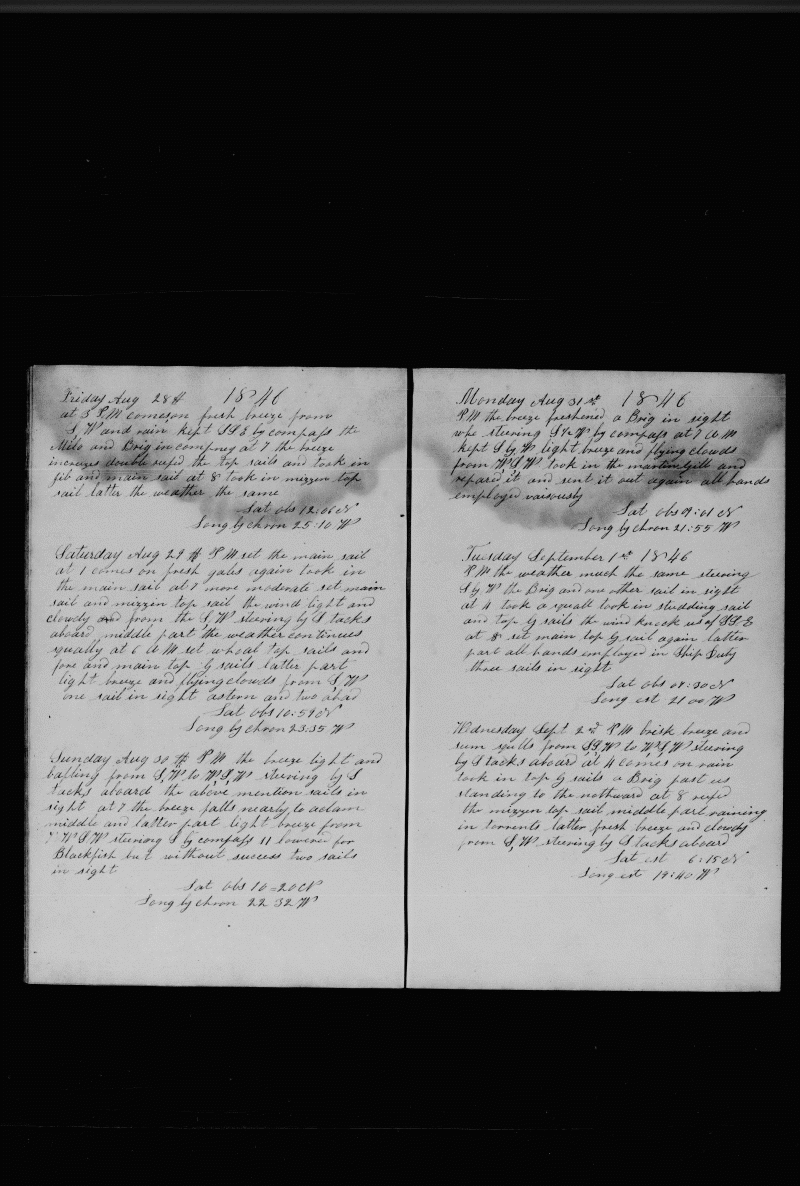 Friday Aug 28th 1846
at 3 P,M comes on fresh breeze from
S,W and rain kept SSE by compass the
Milo and Brig in compney at 7 the breeze
increzes double reefd the top sails and took in
jib and main sail at 8 took in mizzen top
sail latter the weather the same
Lat obs 12:06 N
Long by chron 25:10 W
Saturday Aug 29th P,M set the main sail
at 1 comes on fresh gales again took in
the main sail at 7 more moderate set main
sail and mizzen top sail the wind light and
clowdy and from the S,W steering by S tacks
aboard middle part the weather continues
squally at 6 A M set whoal top sails and
fore and main top G sails latter part
light breeze and flying clowds from S,W
one sail in sight astern and two ahad
Lat obs 10:59 N
Long by chron 23:35 W
Sunday Aug 30th P,M the breeze light and
bafling from S,W to W,S,W steering by S
tacks aboard the above mention sails in
sight at 7 the breeze falls nearly to aclam
middle and latter part light breeze from
W S,W steering S by compass 11 lowered for
Blackfish but without success two sails
in sight
Lat obs 10=20 N
Long by chron 22 32 W
Monday Aug 31st 1846
P,M the breeze freshened a Brig in sight
who steering by compass at 7 A M
kept S by W light breeze and flying clowds
from W,S,W took in the martingill and
repared it and sent it out again all hands
employed variously
Lat obs 9:01 N
Long by chron 21:55 W
Tuesday September 1st 1846
P,M the weather much the same steering
S by W the Brig and one other sail in sight
at 4 took a squall took in studding sail
and top G sails the wind knock us of SSE
at 8 set main top G sail again latter
part all hands employed in Ship Duty
three sails in sight
Lat obs 07:30 N
Long est 21 00 W
Wednesday Sept 2nd P,M brisk breeze and
rain squlls from to W,S,W steering
by S tacks aboard at 4 comes on rain
took in top G sails a Brig past us
standing to the nothward at 8 reefd
the mizzen top sail middle part raining
in torrents latter fresh breeze and clowdy
from S,W steering by S tacks aboard
Lat est 6:15 N
Long est 19:40 W